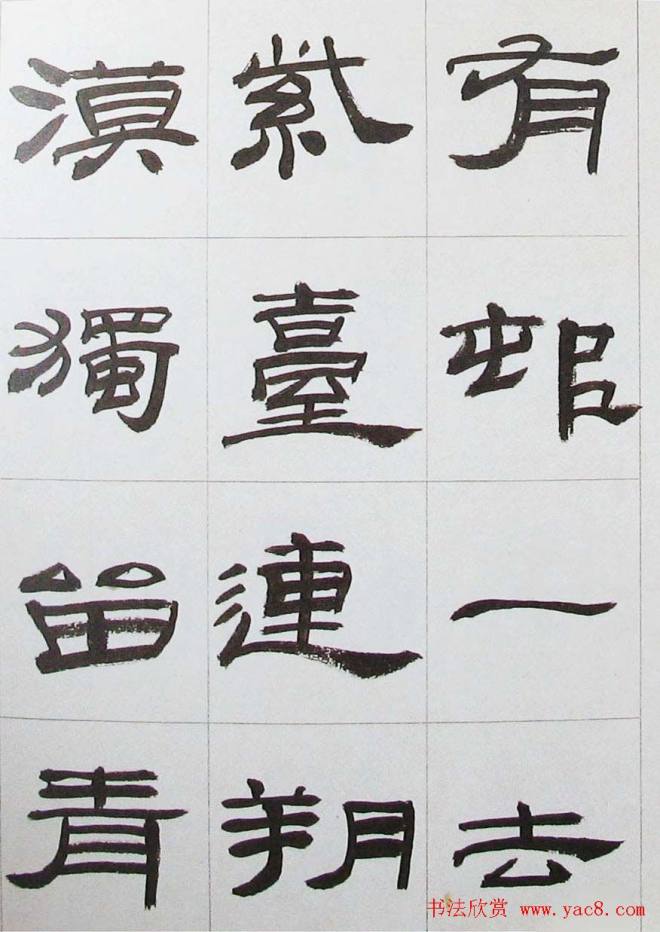 有邨一去
紫臺連朔
漠獨留青
书法欣赏 www.yac8.com